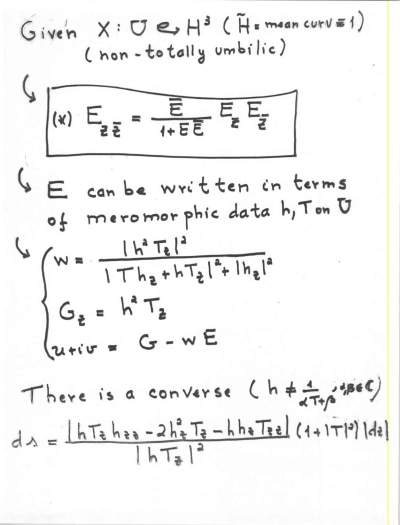 Given X: U ↪ H³ ( H̃ = mean curv ≡ 1)
( non-totally umbilic)
(*) E_{z z̄} = \frac{Ē}{1+E Ē} E_z E_{z̄}
E can be written in terms
of meromorphic data h, T on U
w = \frac{|h² T_z|²}{|T h_z + h T_z|² + |h_z|²}
G_z = h² T_z
u+iv = G - w E
There is a converse ( h ≠ \frac{1}{αT+β}, α,β∈ℂ)
ds = \frac{|h T_z h_{zz} - 2h_z² T_z - h h_z T_{zz}|}{|h T_z|²} (1+|T|²) |dz|